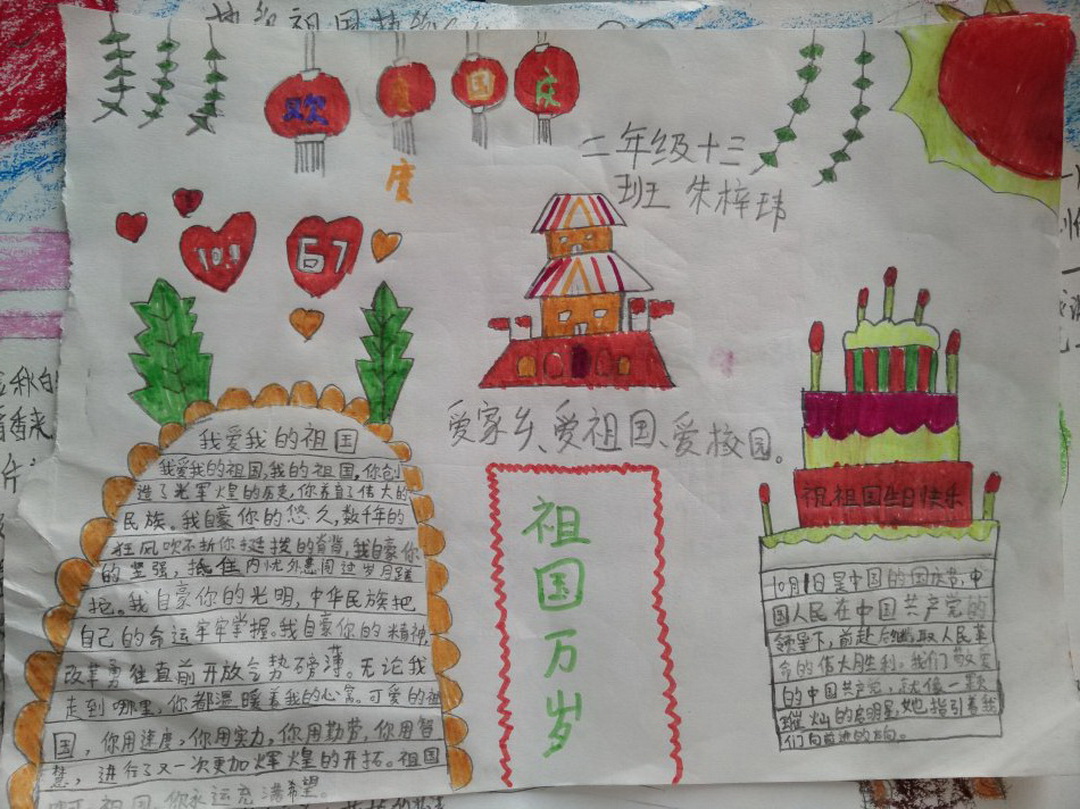 欢度国庆
度
二年级十三
班 朱梓玮
10.1
67
爱家乡、爱祖国、爱校园。
我爱我的祖国
我爱我的祖国,我的祖国,你创
造了光辉煌的历史,你养育了伟大的
民族。我自豪你的悠久,数千年的
狂风吹不折你挺拨的脊背,我自豪你
的坚强,抵住内忧外患闯过岁月蹉
跎。我自豪你的光明,中华民族把
自己的命运牢牢掌握。我自豪你的精神,
改革勇往直前开放气势磅薄。无论我
走到哪里,你都温暖着我的心窝。可爱的祖
国,你用速度,你用实力,你用勤劳,你用智
慧,进行了又一次更加辉煌的开拓。祖国
祖国,你永远充满希望。
祖国万岁
祝祖国生日快乐
10月1日是中国的国庆节,中
国人民在中国共产党的
领导下,前赴后继,取人民革
命的伟大胜利。我们敬爱
的中国共产党,就像一颗
璀灿的启明星,她指引着我
们向前进的方向。